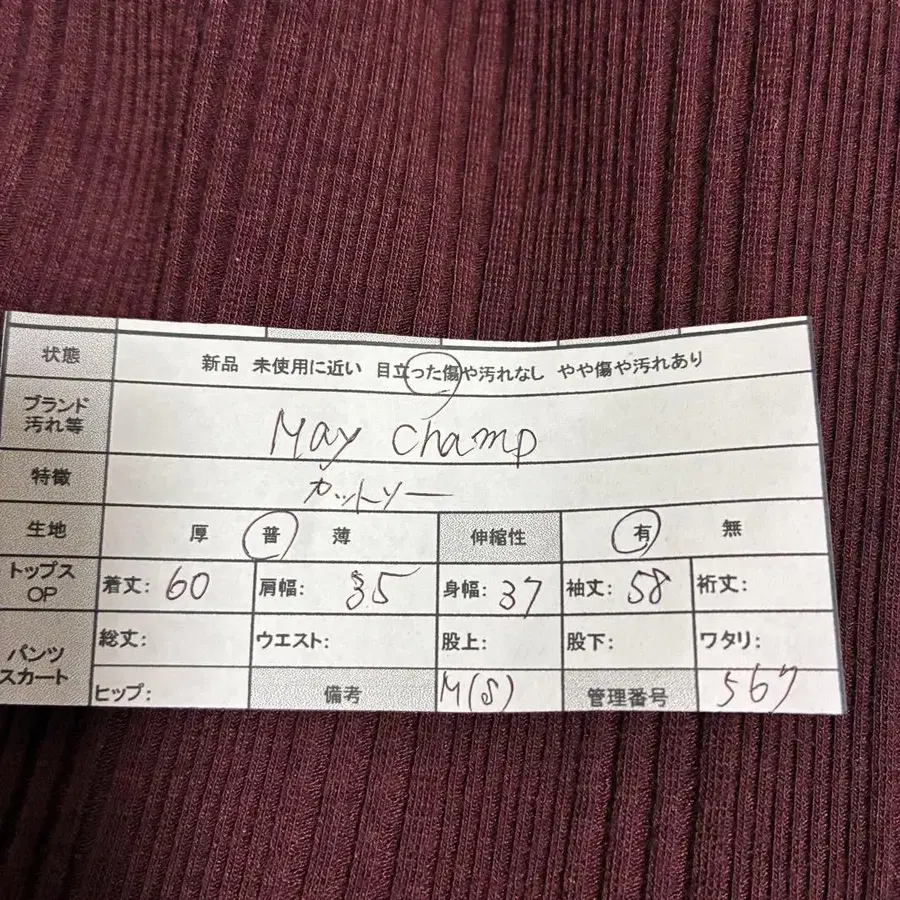 状態 新品 未使用に近い 目立った傷や汚れなし やや傷や汚れあり
ブランド
汚れ等
May champ
特徴 カットソー
生地 厚 普 薄 伸縮性 有 無
トップス
OP
着丈: 60 肩幅: 35 身幅: 37 袖丈: 58 裄丈:
パンツ
スカート
総丈: ウエスト: 股上: 股下: ワタリ:
ヒップ: 備考 M(S) 管理番号 567